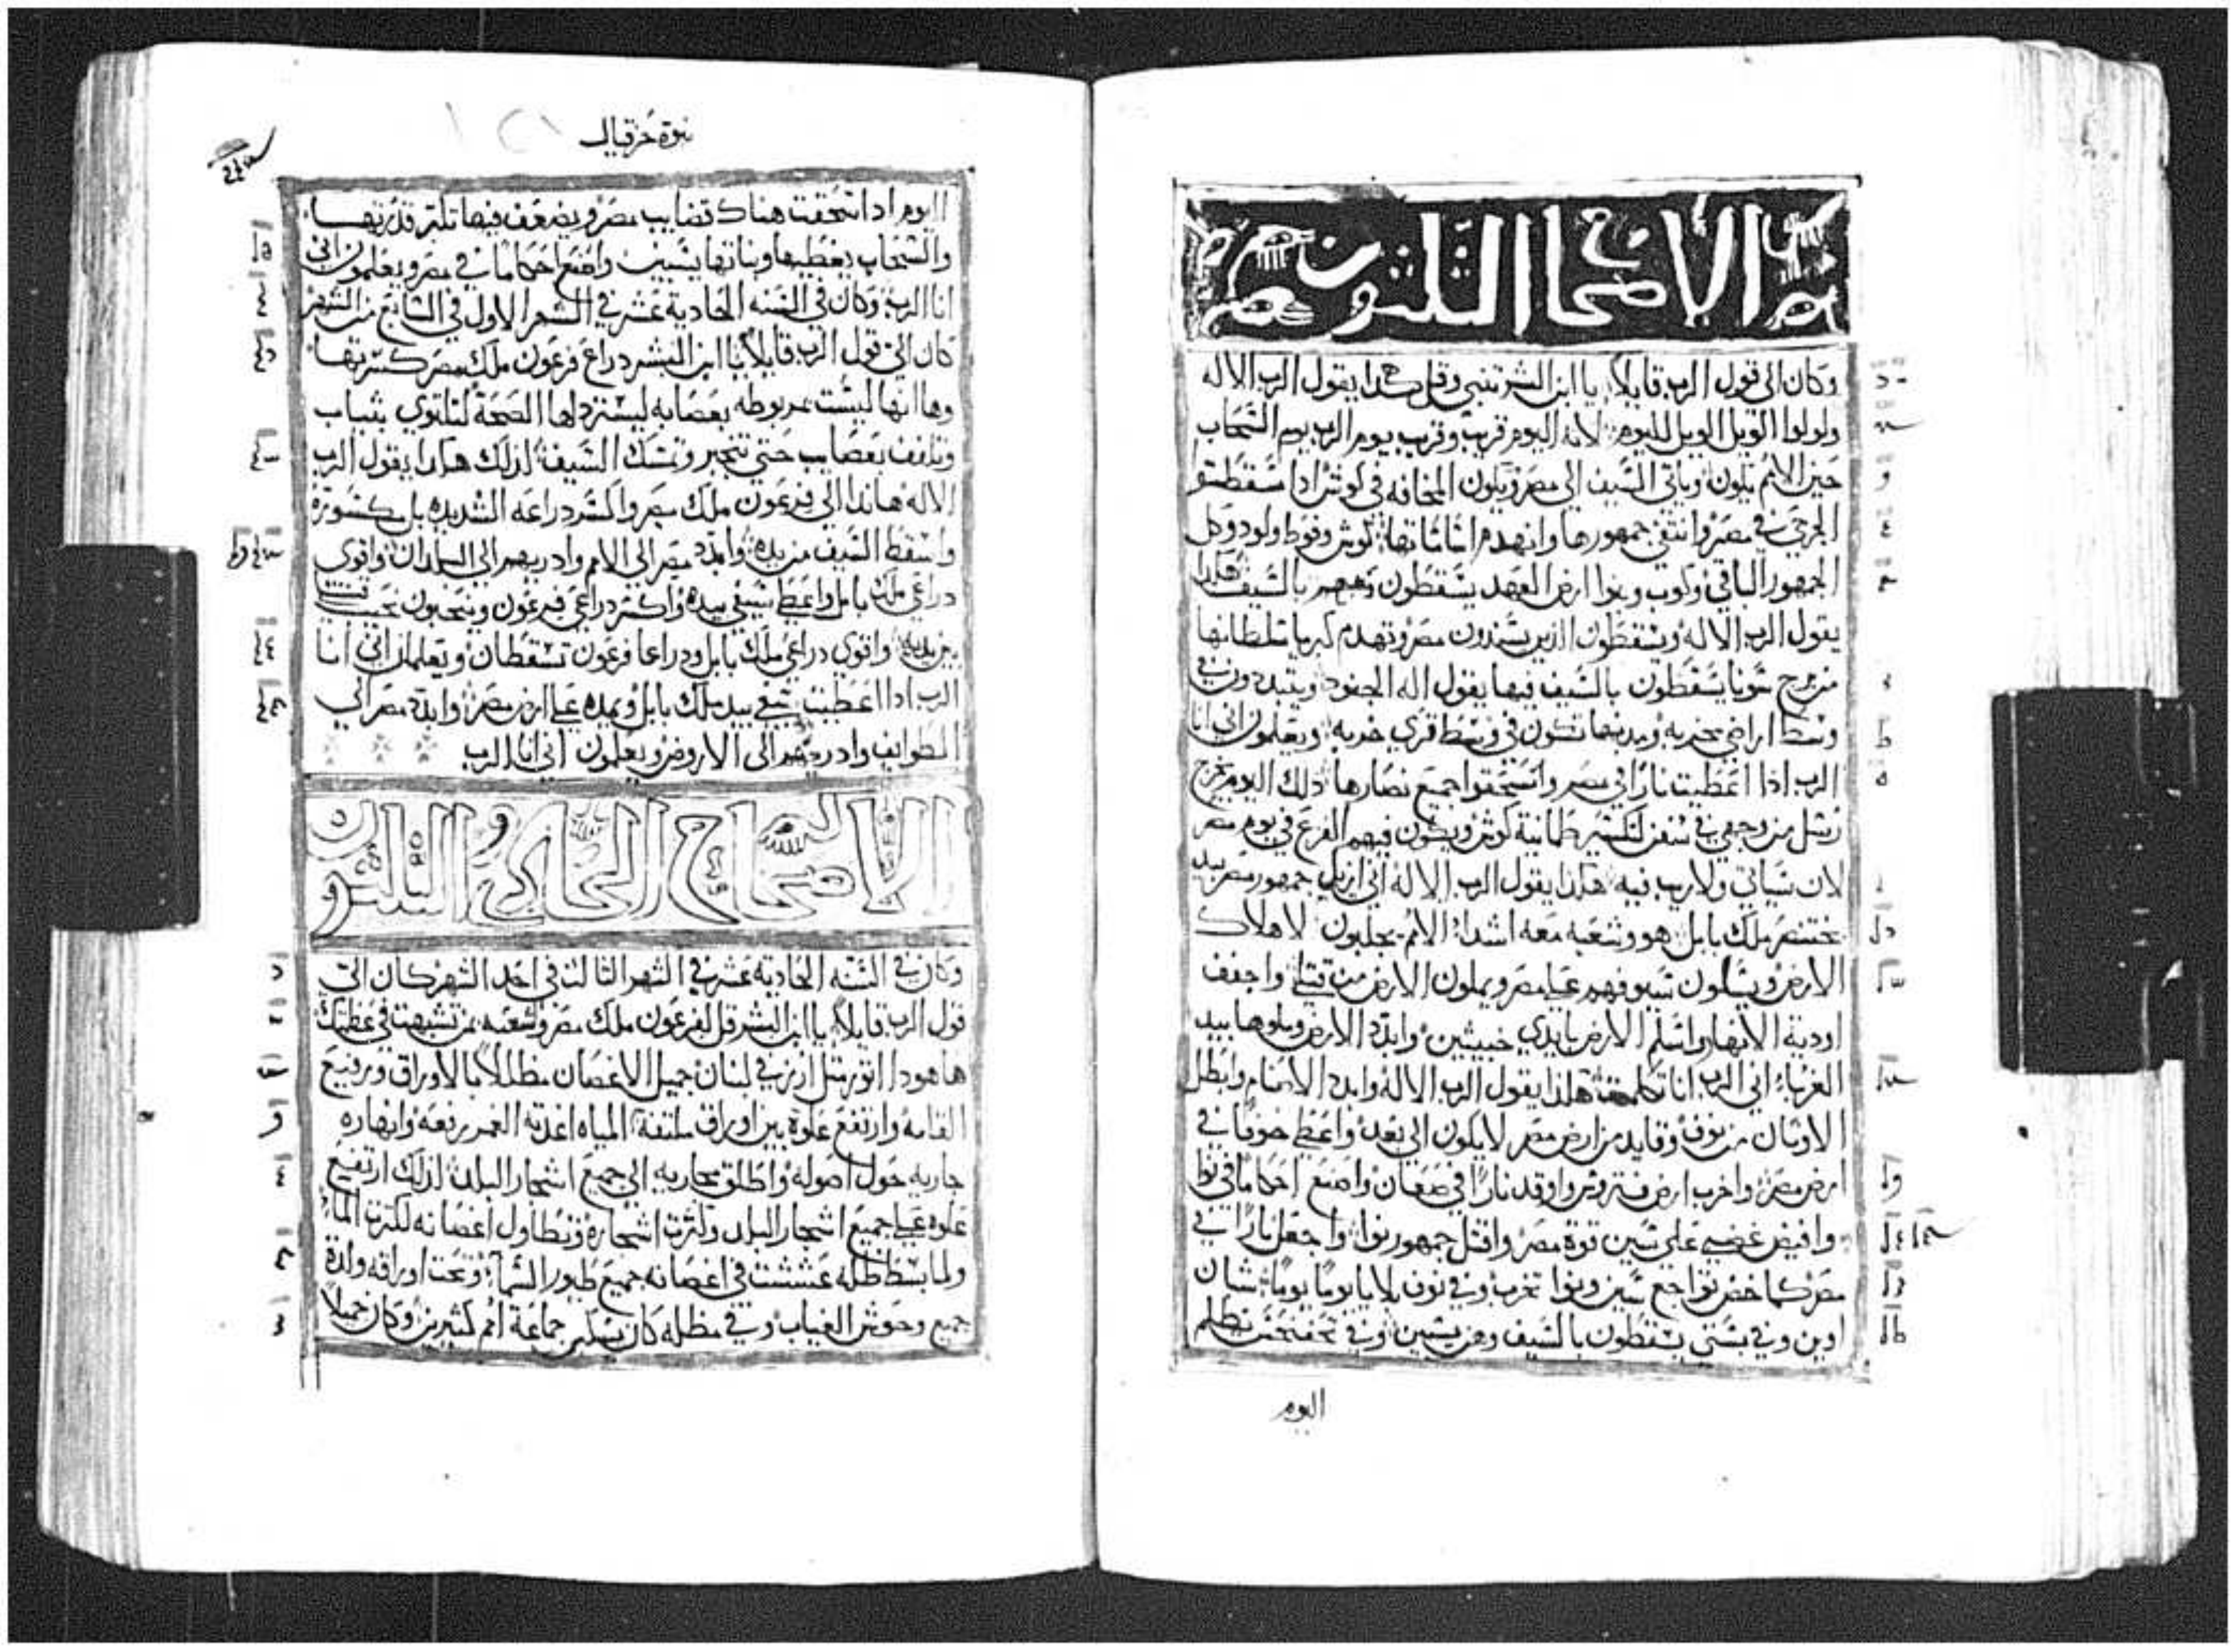 الاصحاح الثلثون
وكان الى قول الرب قايلاً يا ابن البشر تنبى وقل هكدا يقول الرب الاله
ولولوا الويل الويل لليوم لانه اليوم قريب وقريب يوم الرب يوم السحاب
حين الامم يكون وياتي السيف الى مصر ويكون المخافه في كوش ادا سقطتو
الجرحى في مصر وانتفى جمهورها وانهدم اساساتها كوش وفوط ولود وكل
الجمهور الباقي وكوب وبنوا ارض العهد يسقطون معهم بالسيف هكدا
يقول الرب الاله ويسقطون الدين يسندون مصر وتهدم كبريا سلطانها
من برج سونا يسقطون بالسيف فيها يقول اله الجنود ويتبددون في
وسط اراضي مخربه ومدنها تكون في وسط قرى خربه ويعلمون اني انا
الرب ادا اعطيت نارًا في مصر وانسحقوا جميع نصارها دلك اليوم يخرج
رسل من وجهي في سفن لتكسير طمانية كوش ويكون فيهم الفزع في يوم مصر
لان سياتي ولا ريب فيه هكدا يقول الرب الاله اني ازيل جمهور مصر بيد
بختنصر ملك بابل هو وشعبه معه اشدا الامم يجلبون لاهلاك
الارض ويسلون سيوفهم على مصر ويملون الارض من قتلى واجفف
اودية الانهار واسلم الارض بايدي خبيثين وابدد الارض وملوها بيد
الغرباء اني الرب انا تكلمت هكدا يقول الرب الاله وابدد الاصنام وابطل
الاوثان من نوف وقايد من ارض مصر لا يكون الى بعد واعطي خوفًا في
ارض مصر واخرب ارض فتروس واوقد نارًا في صعان واصنع احكامًا في نوا
وافيض غضبي على سين قوة مصر واقتل جمهور نوا واجعل نارًا في
مصر كما خض تواجع سين ونوا تخرب وفي نوف بلايا يومًا يومًا شبان
اوين وفي بستى يسقطون بالسيف وهن يسبين وفي تحفنحس يظلم
اليوم
نبوة حزقيال
اليوم ادا سحقت هناك قضايب مصر ويضعف فيها تكبر قدرتها
والسحاب يغطيها وبناتها يسبين واصنع احكامًا في مصر ويعلمون اني
انا الرب وكان في السنه الحادية عشر في الشهر الاول في السابع من الشهر
كان اليّ قول الرب قايلاً يا ابن البشر دراع فرعون ملك مصر كسرتها
وها انها ليست مربوطه بعصابه ليسترد لها الصحة لتلتوي بثياب
وتلفف بعصايب حتى تتجبر وتمسك السيف لدلك هكدا يقول الرب
الاله هاندا الى فرعون ملك مصر واكسر دراعه الشديده بل مكسورة
واسقط السيف من يده وابدد مصر الى الامم وادريهم الى البلدان واقوى
دراعي ملك بابل واعطي سيفي بيده واكسر دراعي فرعون وينتحبون نحيب قتلى
بين يديه واقوي دراعي ملك بابل ودراعا فرعون تسقطان ويعلمان اني انا
الرب ادا اعطيت سيفي بيد ملك بابل ويمده على ارض مصر وابدد مصر الى
الطوايف وادريهم الى الاروض ويعلمون اني انا الرب
الاصحاح الحادي والثلثون
وكان في السنه الحادية عشر في الشهر الثالث في احد الشهر كان اليّ
قول الرب قايلاً يا ابن البشر قل لفرعون ملك مصر وشعبه بمن تشبهت في عظمتك
ها هودا اتور مثل ارز في لبنان جميل الاغصان مظللاً بالاوراق ورفيع
القامه وارتفع علوه بين اوراق ملتفة المياه اغدته الغمر رفعه وانهاره
جاريه حول اصوله واطلق مجاريه الى جميع اشجار البلد لدلك ارتفع
علوه على جميع اشجار البلد وكثرت اشجاره وتطاول اغصانه لكثرت الماء
ولما بسط ظله عششت في اغصانه جميع طيور السماء وتحت اوراقه ولدة
جميع وحوش الغياب وفي مظله كان يسكن جماعة امم كثيرين وكان جميلاً